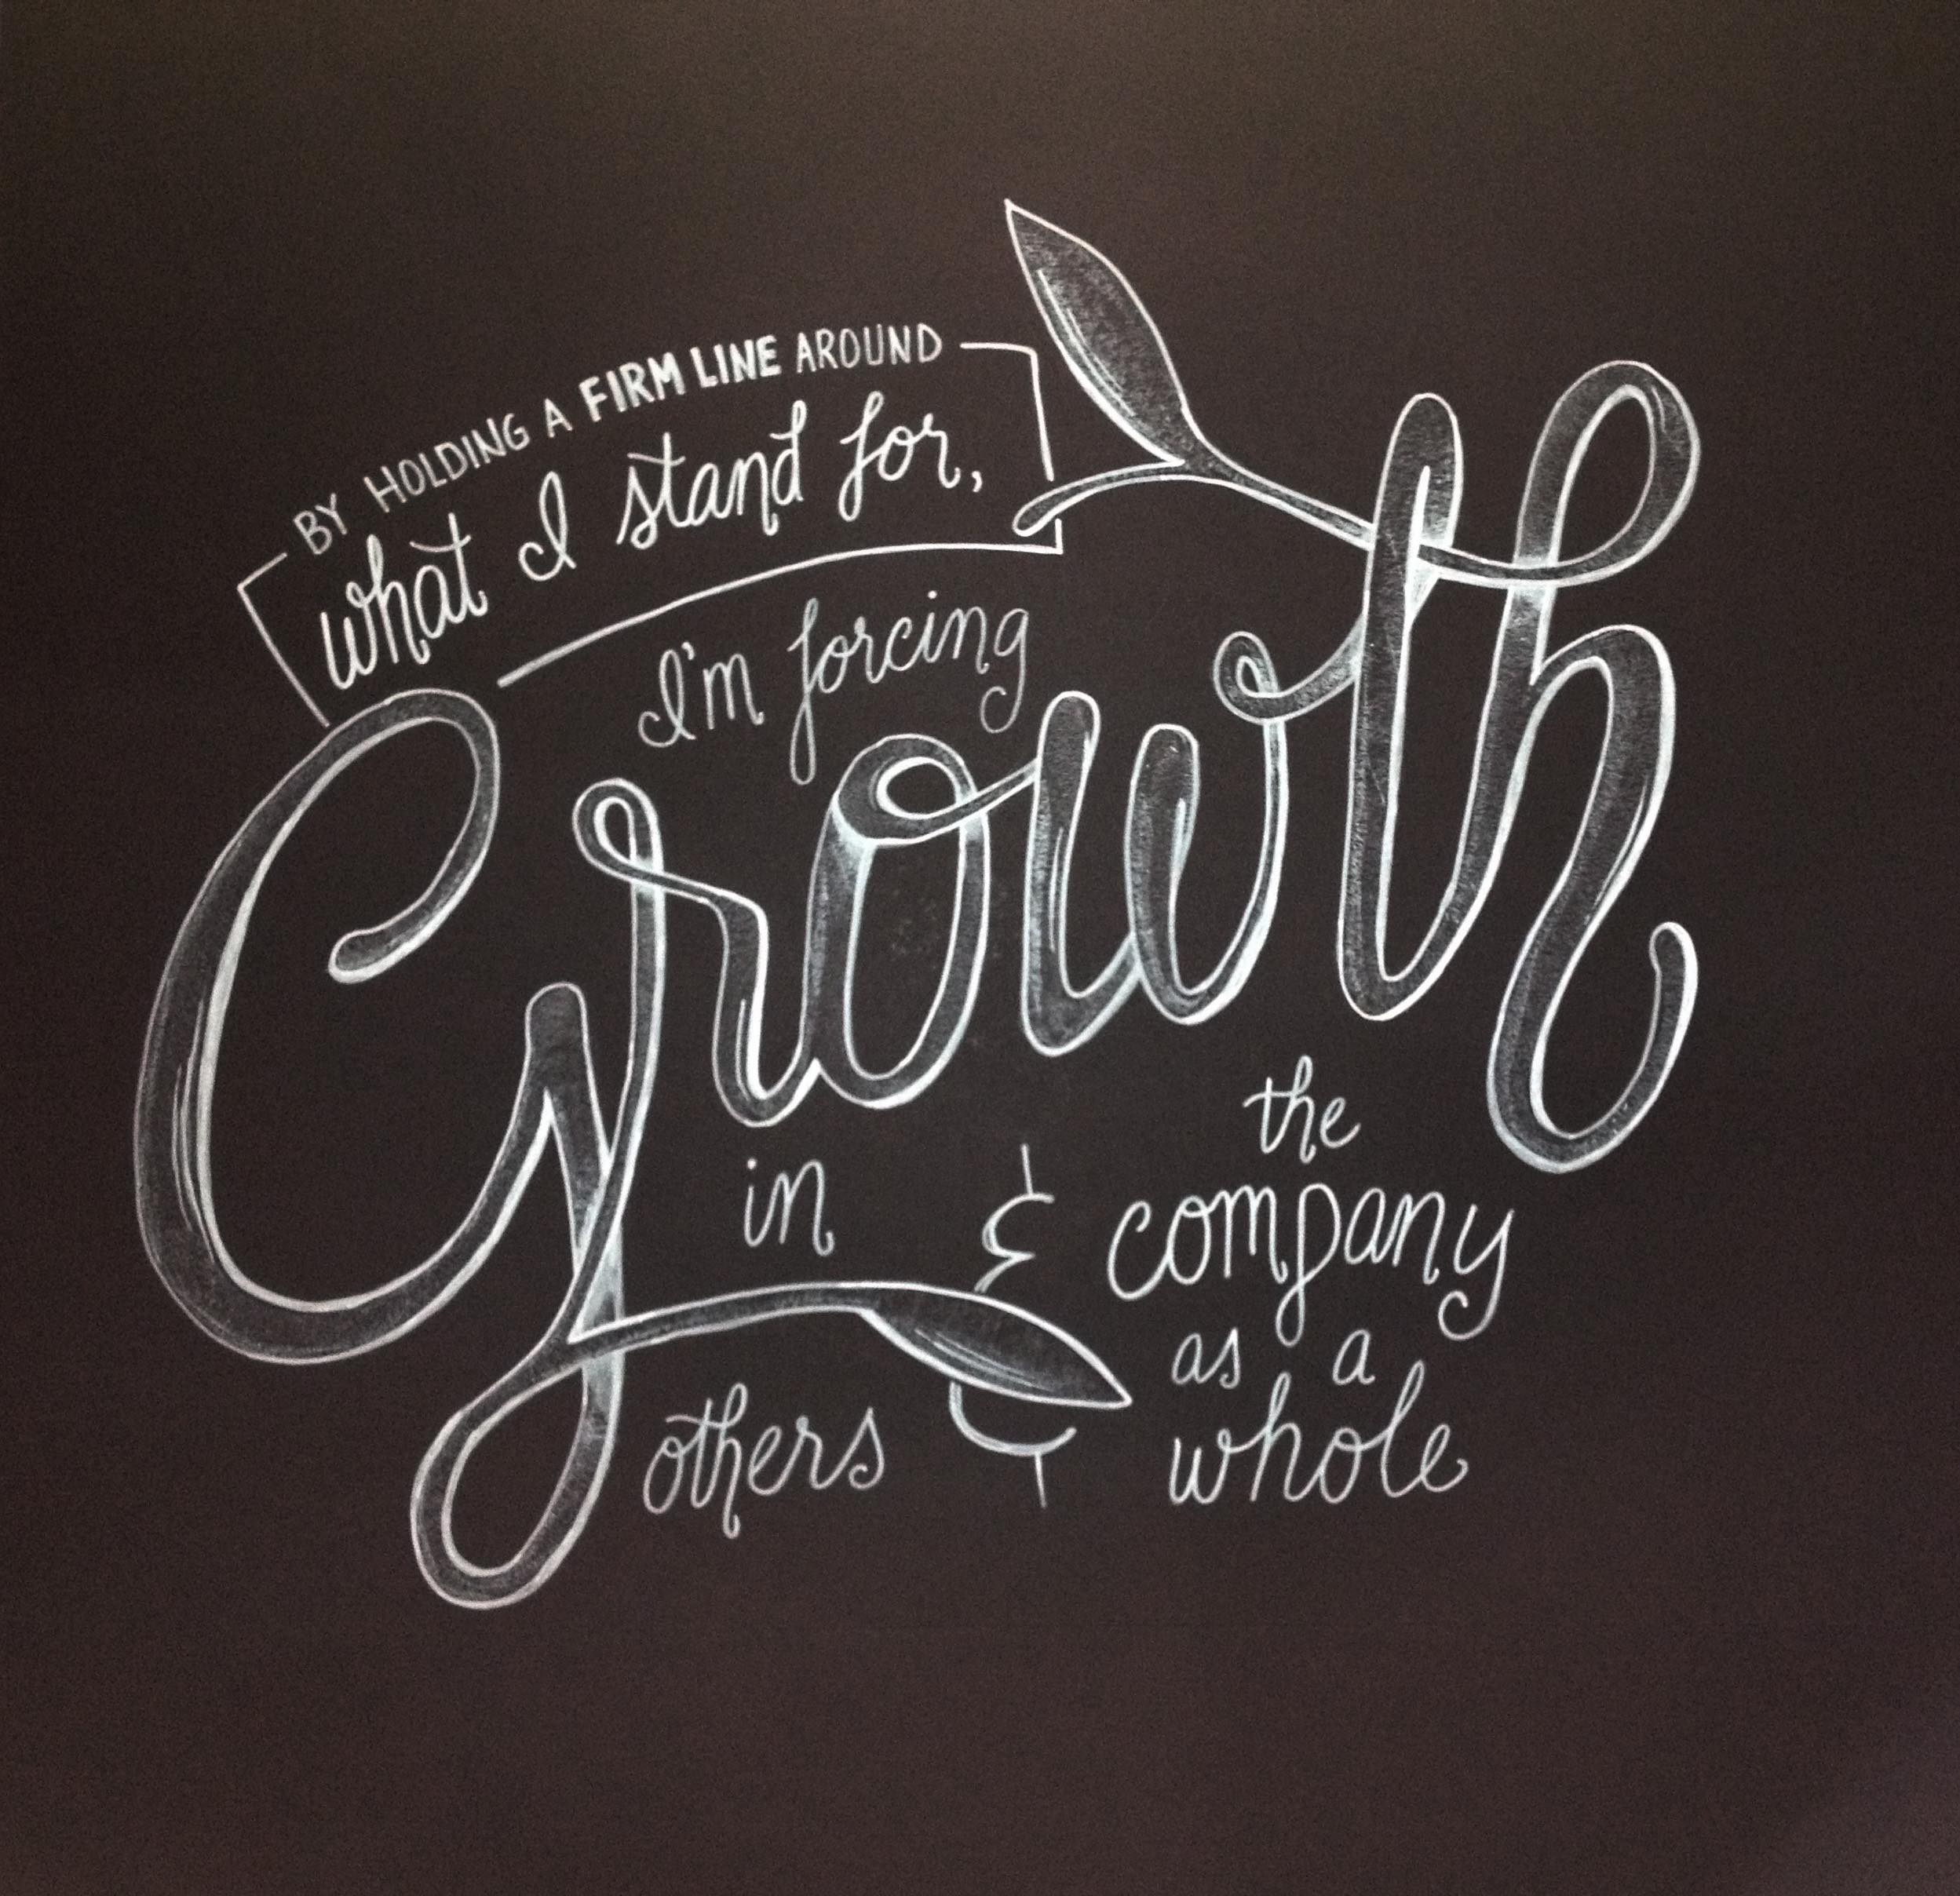 BY HOLDING A FIRM LINE AROUND
what I stand for,
I'm forcing
Growth
in
others
&
the
company
as a
whole